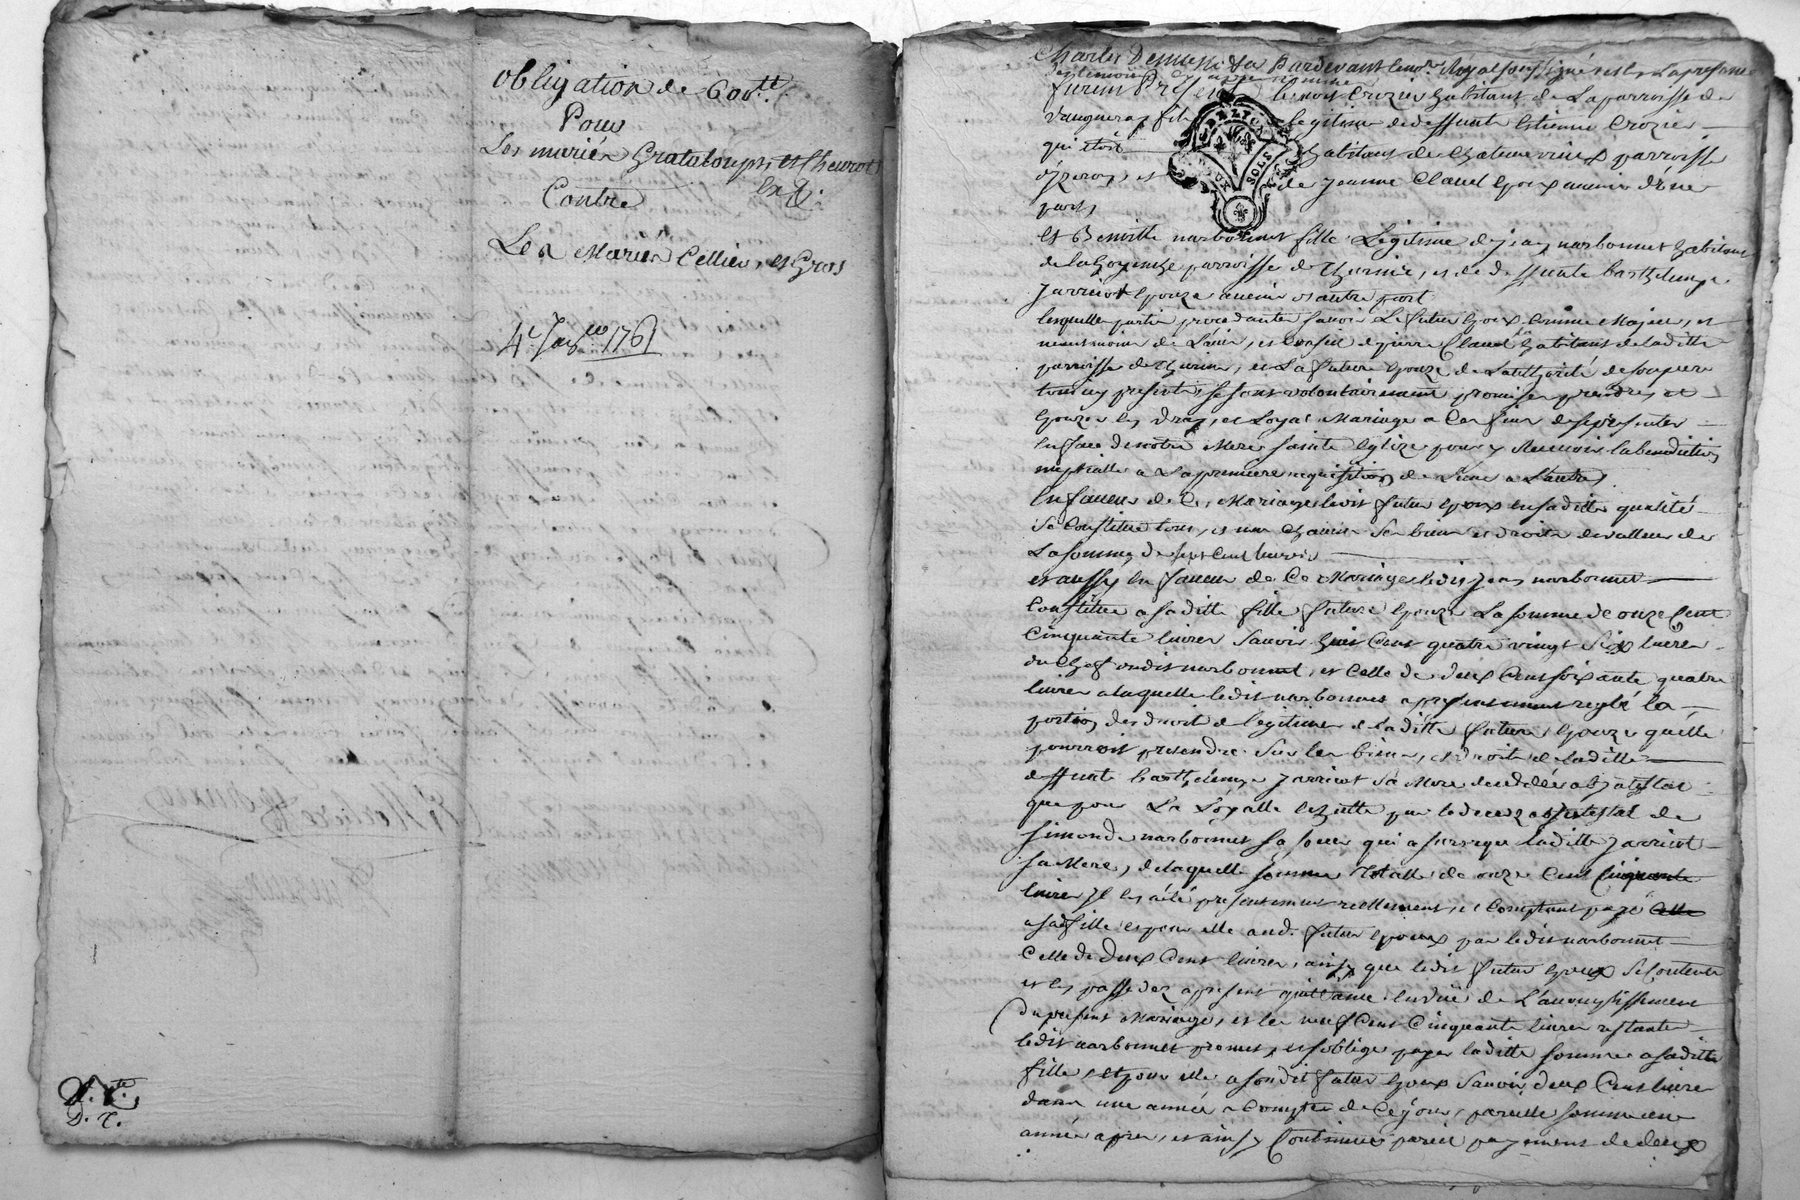 obligation de 600tt
Pour
Les mariés Grataloup, et Cheurot
Contre
Les Mariés Cellier, et Gras
4e Janer 1761
D. T.
Pardevant le nore Royal soussigné et en la presence
furent Présent benoist Crozier habitant de La parroisse de
Vaugneray fils Legitime de deffunt Estienne Crozier
qui étoit habitant de parroisse
d'yzeron, et de Jeanne Clavel Epoux avenir d'une
part,
Et Benoitte narbonnet fille Legitime de jean narbonnet habitant
de parroisse de Thurins, et de deffunte barthelemye
Jarricot Epouze avenir d'autre part
lesquelles partie procedante savoir Le futur Epoux comme Majeur, et
neantmoins de L'avis, et Conseil de pierre Clavel habitant de laditte
parroisse de Thurins, et La future Epouze de L'authorité de son pere
tous icy presents, se sont volontairement promis se prendre, et
Epouzer en vray, et Loyal Mariage a Ces fins de se presenter
En face de notre Mere sainte Eglize pour y Recevoir la benediction
nuptialle a La premiere requisition de L'une a L'autre
En faveur de Ce Mariage ledit futur Epoux en saditte qualité
Se Constitue tous, et un Chacun Ses biens et droits de valleur de
La somme de sept Cent livres
et aussy En faveur de Ce Mariage ledit Jean narbonnet
Constitue a saditte fille future Epouze La somme de onze Cent
Cinquante livres Savoir huit Cent quatre vingt Six livres
du Chef dudit narbonnet, et Celle de deux Cent soixante quatre
livres a laquelle ledit narbonnet a presentement reglé la
portion des droit de legitime de laditte future Epouze quelle
pourroit pretendre Sur les biens, et droits de laditte
deffunte barthelemye Jarricot Sa Mere decedée abintestat
que pour La Loyalle Echutte par le decez abintestat de
Simonde narbonnet sa soeur qui a survequ laditte Jarricot
sa Mere, de laquelle somme Totalle de onze Cent Cinquante
livres Il en a été presentement reellement, et Comptant payé Celle
a sad fille et pour elle aud. futur Epoux par ledit narbonnet
Celle de deux Cent livres, ainsy que ledit futur Epoux Se Contente
et en passe dez a present quittance En vüe de L'accomplissement
Du present Mariage, et les neuf Cent Cinquante livres restante
ledit narbonnet promet, et s'oblige payer laditte somme a saditte
fille, et pour elle a son dit futur Epoux Savoir deux Cent livres
dans une année a Compter de Ce jour, pareille somme une
année apres, et ainsy Continuer pareil payement de deux